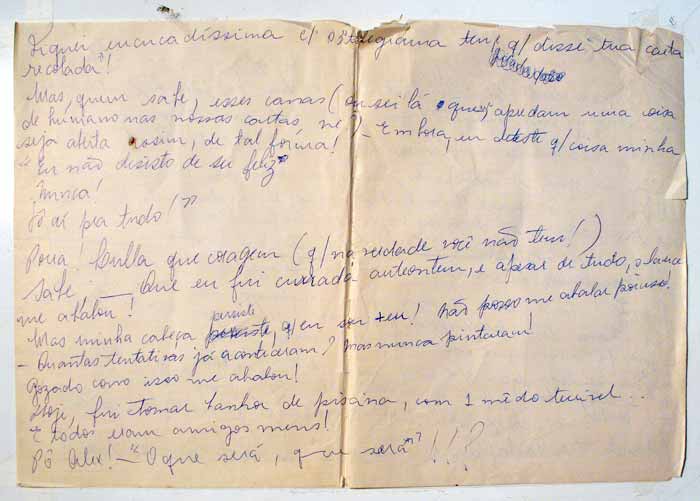 Fiquei encucadíssima c/ o telegrama teu, q/ disse "tua carta
recolada"!
Mas, quem sabe, esses caras (ou sei lá quem) ajudam uma coisa
de humano nas nossas cartas, né? - Embora, eu deteste q/ coisa minha
seja aberta assim, de tal forma!
"Eu não desisto de ser feliz
Nunca!
Tô aí pra tudo!"
Porra! Bulla que coragem (q/ na verdade você não tem!)
Sabe - Que eu fui currada anteontem, e apesar de tudo, o lance
me abalou!
Mas minha cabeça persiste, q/ eu sou + eu! Não posso me abalar por isso!
- Quantas tentativas já aconteceram? Mas nunca pintaram!
Gozado como isso me abalou!
Hoje, fui tomar banho de piscina, com 1 mêdo terrível...
E todos eram amigos meus!
Pô Alex! - "O que será, que será"!!?